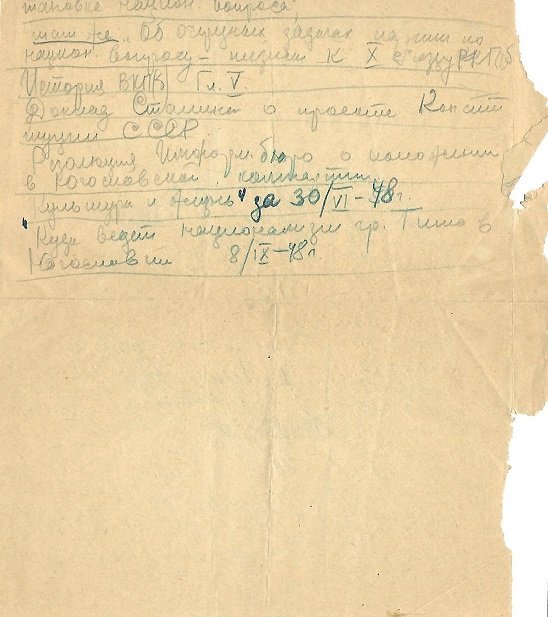 тановке национ. вопроса"
там же „Об очередных задачах партии по
национ. вопросу – тезисы к X съезду РКП(б
История ВКП(б) Гл. V.
Доклад Сталина о проекте Консти
туции СССР
Резолюция Информ. бюро о положении
в Югославской компартии
Культура и жизнь" за 30/VI–48 г.
"Куда ведет национализм гр. Тито в
Югославии 8/IX–48 г.